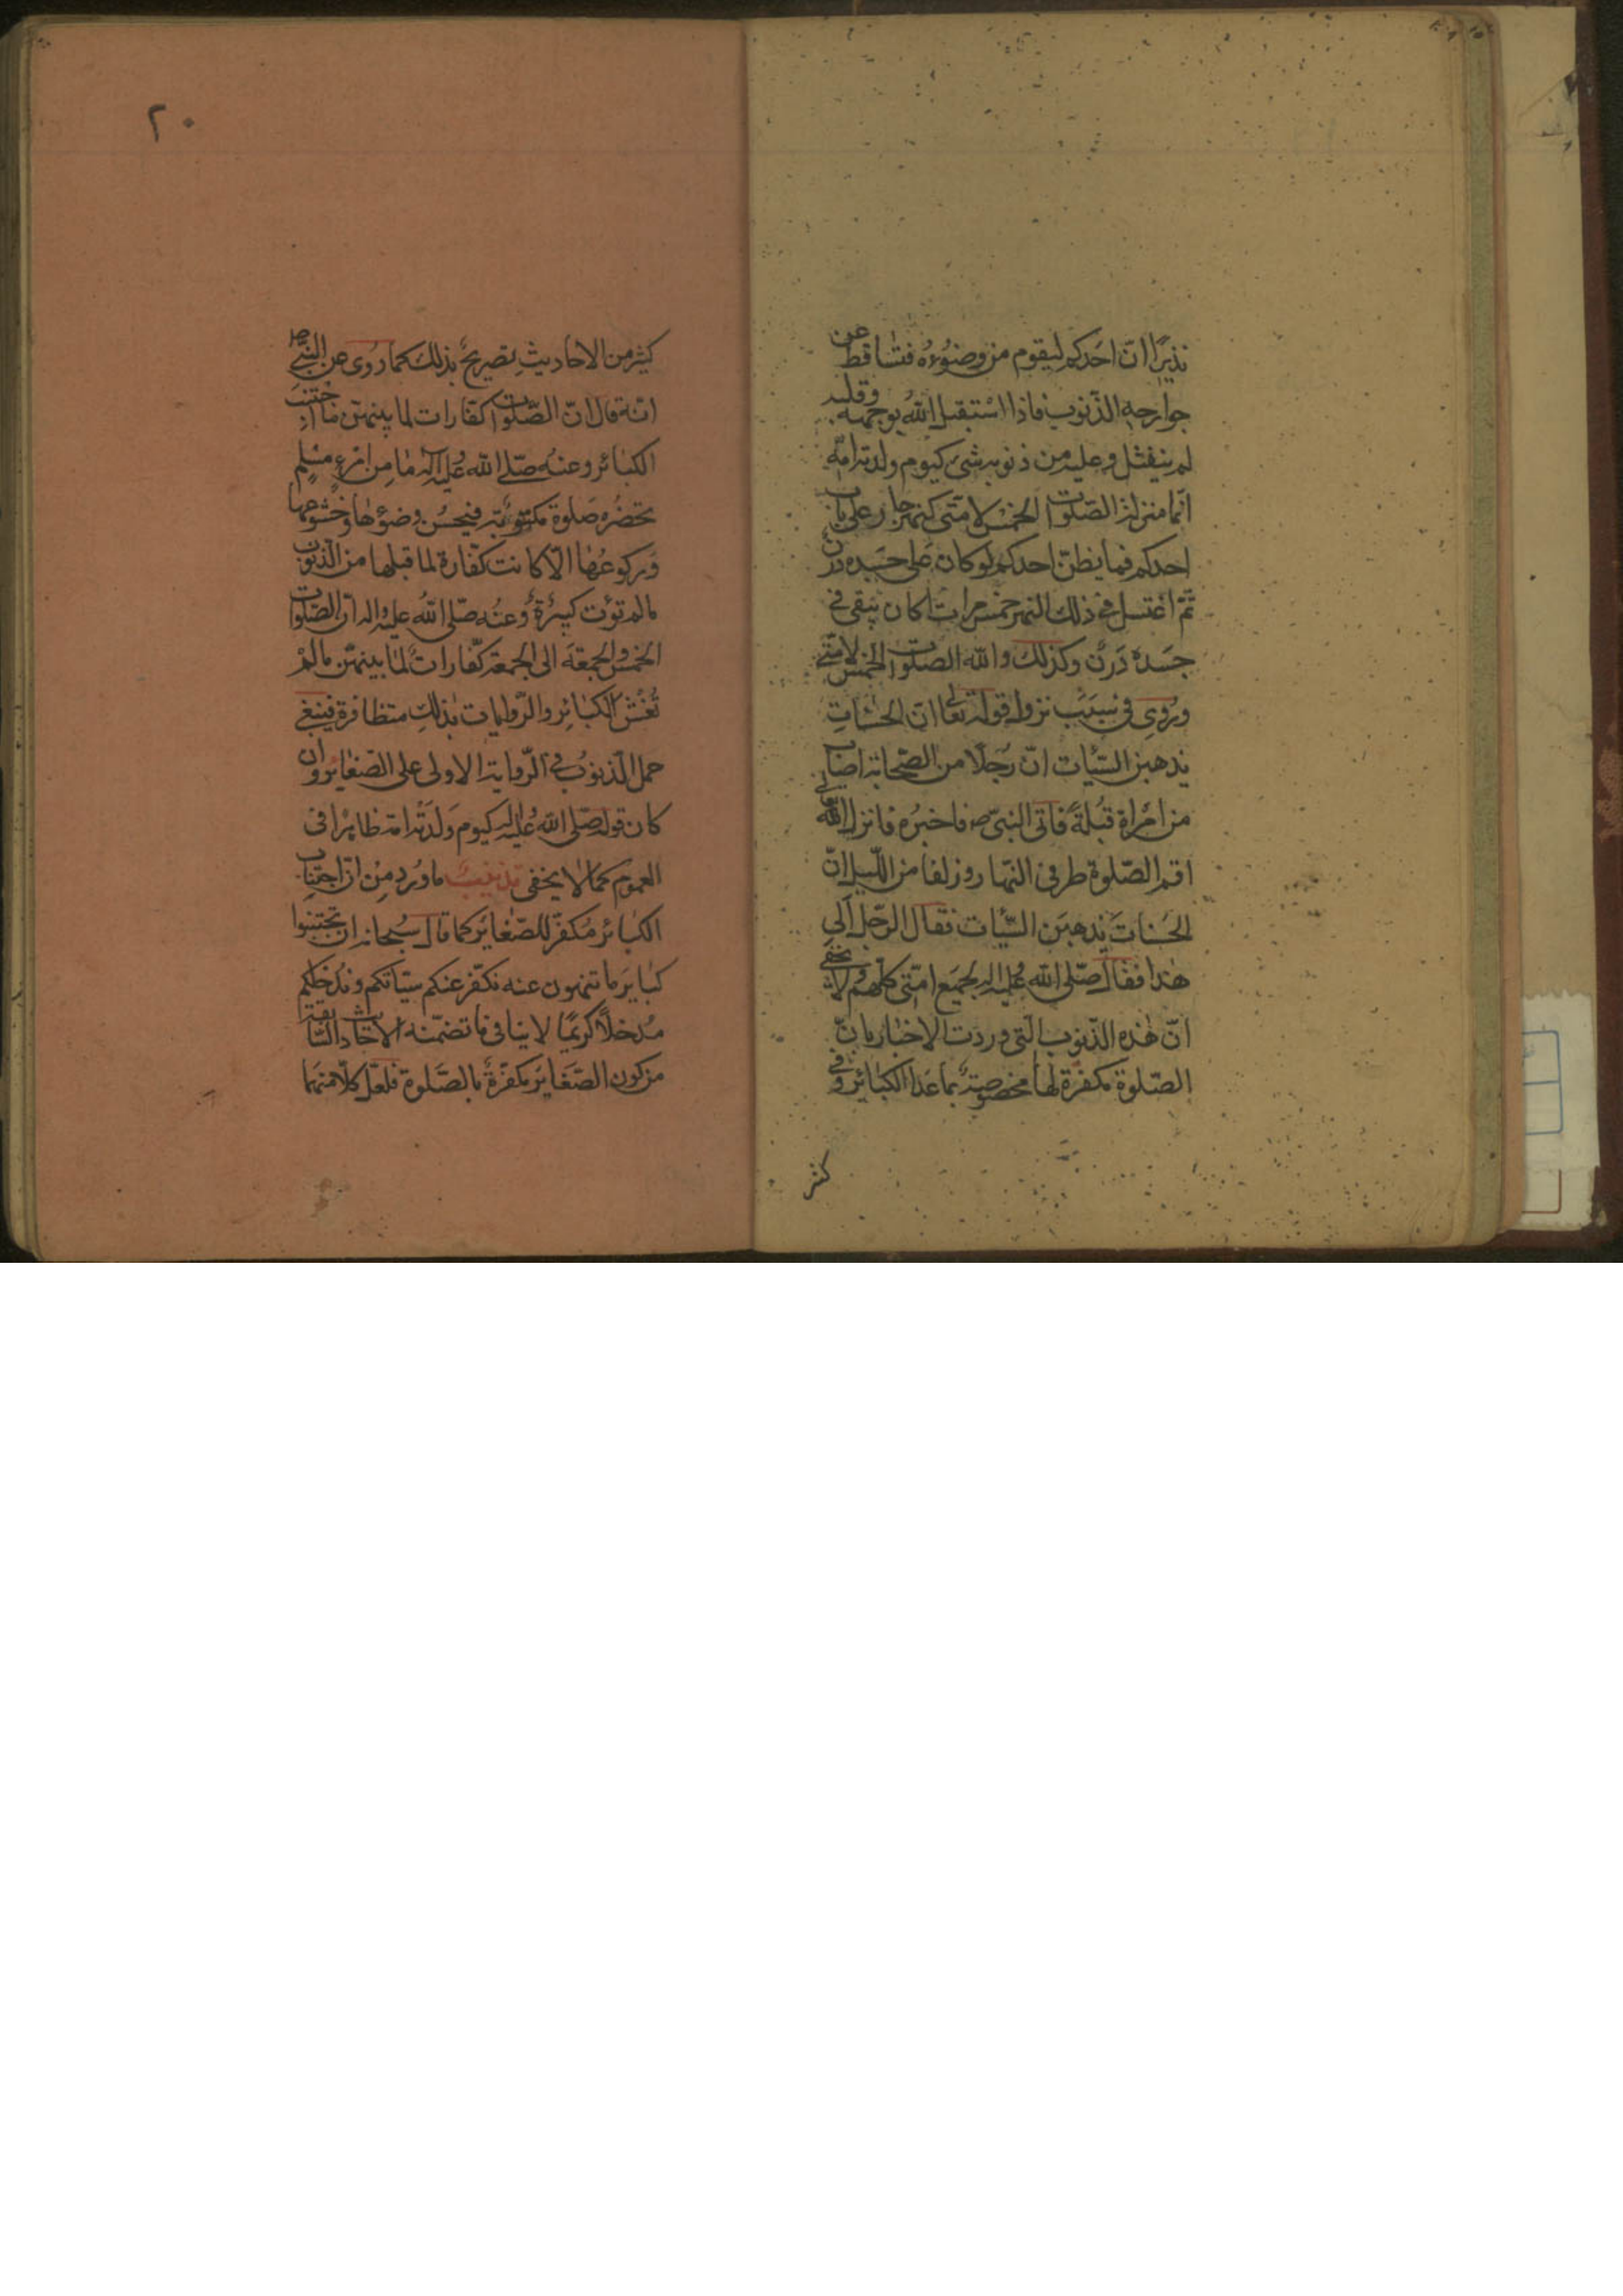 نذيرًا انّ احَدكم ليقوم من وضوُءه فتسٰاقط عن
جوارحه الذّنوب فاذا اسْتقبل اللهُ بوجهه وقلبه
لم ينفتل وعليه من ذنوبه شیٔ كيوم ولدته امّه
انّما منزلة الصّلوات الخمس لامّتى كنهر جار على باب
احدكم فما يظنّ احدكم لو كان عَلى جسَده درن
ثمّ اغتسل فى ذلك النهر خمس مرات اكان يَبقى فى
جسَدهْ دَرَن وكذلك والله الصلوات الخمس لامّتى
ورُوى فى سَبَب نزول قوله تعالى انّ الحسَنٰاتِ
يذهبن السّيّئات انّ رَجلًا من الصّحابة اصاب
من امْراة قبُلةً فاتى النبىّ ص فاخبرُه فانزل الله تعالى
اقم الصّلوة طرفى النّهار وزلفا من اللّيل انّ
الحَسَنات يذهبَن السّيّئات فقال الرّجل اَلى
هٰذا فقال صلّى الله عليه واله لجميَع امّتى كلّهم ولا يخفى
انّ هٰذه الذّنوب الّتى وردَت الاخبٰار بانّ
الصّلوة مكفرّة لها مخصوصة بما عَدا الكبٰائر وفى
كثير
٢٠
كثير من الاحاديثِ تصريحٌ بذلك كما رُوى عن النبىّ ص
انّه قال انّ الصّلوات كفّارات لما بينهنّ ما اجتنبَ
الكبٰائر وعنهُ صلّى الله عليه واله مٰا مِن امْرءٍ مسْلمٍ
تحضرُه صَلوة مكتوبة فيحسُن وضوُءهٰا وخشوعهٰا
وَركوعهٰا الّا كانت كفّارة لما قبلها من الذّنوب
مالم تؤت كبيرَةٌ وعنُه صلّى اللهُ عليه واله انّ الصّلوات
الخمس والجمعَة الى الجمعة كفّاراتٌ لمٰا بينهنّ مالمْ
تُغْشَ الكبٰائِر والرّوايات بذلكِ متظافرة فينبغى
حمل الّذنوبُ فى الرّواية الاولى على الصّغٰاير وان
كان قوله صلّى الله عليه واله كيوم وَلدَته امّه ظاهرًا فى
العموم كما لا يخفى تذنيبٌ ما ورَد مِن انّ اجتنٰاب
الكبٰائر مُكفّر للصّغٰائر كما قال سُبحانه ان تجتنبوا
كبٰايَر ما تنهون عنه نكفّر عنكم سيّئاتكم ونُدخلكم
مُدخلًا كريمًا لا ينافى مٰا تضمّنه الاحٰاديث السّابقة
من كون الصّغَايَر مكفرّةً بالصّلوة فلعلّ كلّا منهما